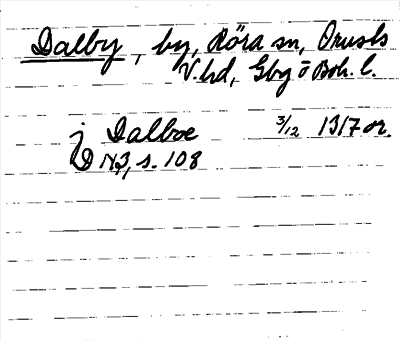 Dalby, by, Röra sn, Orusts
V. hd, Gbg o Boh. l.
j Dalboe 3/12 1317 or.
DN 3, s. 108